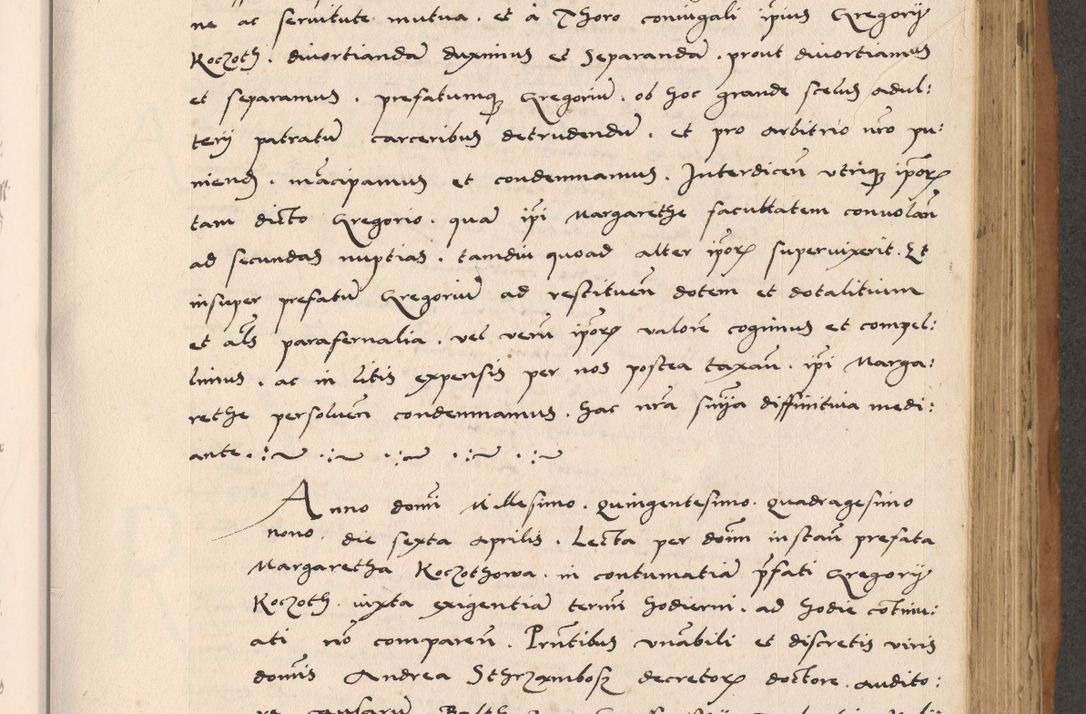 ne ac servitute mutua . et à Thoro coniugali ip̃ius Gregorij
Koczoth . divortiandã duximus et Separandã . prout divortiamus
et separamus . prefatumq̃ Gregoriũ . ob hoc grande scelus adul:
terij patratũ carceribus detrudendũ . et pro arbitrio nr̃o pu:
niend̃ . mãcipamus et condemnamus . Interdiceñ utriq̃ ip̃oꝝ
tam dicto Gregorio . quã ip̃i Margarethe facultatem convolañ
ad secundas nuptias . tamdiu quoad alter ip̃oꝝ supervixerit . Et
insuper prefatũ Gregoriũ ad restitueñ dotem et dotalitium
et al̃s parafernalia . vel verũ ip̃oꝝ valorẽ cogimus et compel:
limus . ac in litis expensis per nos postea taxañ . ip̃i Marga:
rethe persolveñ condemnamus . hac nr̃a sñia diffinitiva medi:
ante . :~ . :~ . :~ . :~ . :~
Anno domĩ Millesimo . Quingentesimo . Quadragesimo
nono . die sexta Aprilis . Lecta per dom̃ instañ prefata
Margaretha Koczothowa . in contumatiã p̃fati Gregorij
Koczoth . iuxta exigentiã termĩ hodierni . ad hodie cõtinu:
ati nõ compareñ . Prñtibus venãbili et discretis viris
domĩs Andrea Sthrzambosz decretoꝝ doctore . Audito:
re causarũ